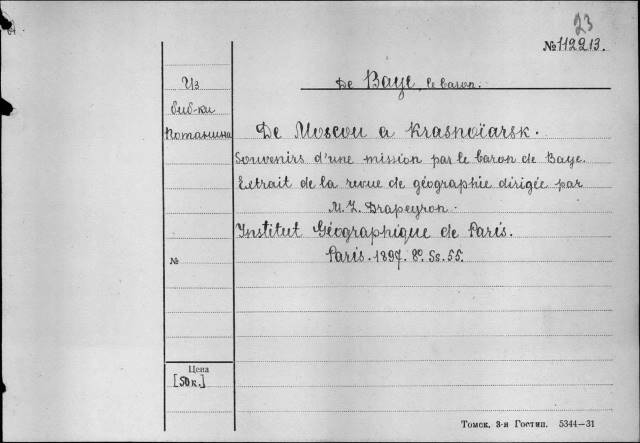 23
№ 112213.
De Baye, le baron.
Из
биб-ки
Потанина
De Moscou a Krasnoïarsk.
Souvenirs d'une mission par le baron de Baye.
Extrait de la revue de géographie dirigée par
M. L. Drapeyron.
Institut Géographique de Paris.
Paris. 1897. 8º. Ss. 55.
№
Цена
[50к.]
Томск. 3-я Гостип. 5344—31